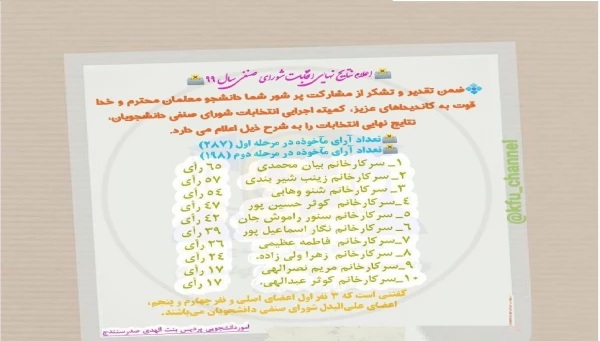 اعلام نتایج نهایی انتخابات شورای صنفی سال ۹۹
ضمن تقدیر و تشکر از مشارکت پر شور شما دانشجو معلمان محترم و خدا
قوت به کاندیداهای عزیز، کمیته اجرایی انتخابات شورای صنفی دانشجویان،
نتایج نهایی انتخابات را به شرح ذیل اعلام می دارد.
تعداد آرای مأخوذه در مرحله اول (۲۸۷)
تعداد آرای مأخوذه در مرحله دوم (۱۹۸)
۱_ سرکارخانم بیان محمدی ۶۵ رأی
۲_سرکارخانم زینب شیر بندی ۵۷ رأی
۳_ سرکارخانم شنو وهابی ۵۴ رأی
۴_سرکارخانم کوثر حسین پور ۴۷ رأی
۵_ سرکارخانم سنور راموش جان ۴۲ رأی
۶_ سرکارخانم نگار اسماعیل پور ۳۹ رأی
۷_سرکارخانم فاطمه عظیمی ۲۶ رأی
۸_ سرکارخانم زهرا ولی زاده. ۲۴ رأی
۹_سرکارخانم مریم نصرالهی ۱۷ رأی
۱۰_سرکارخانم کوثر عبدالهی. ۱۷ رأی
گفتنی است که ۳ نفر اول اعضای اصلی و نفر چهارم و پنجم،
اعضای علی‌البدل شورای صنفی دانشجویان می‌باشند.
امور دانشجویی پردیس بنت الهدی صدر سنندج
@kfu_channel